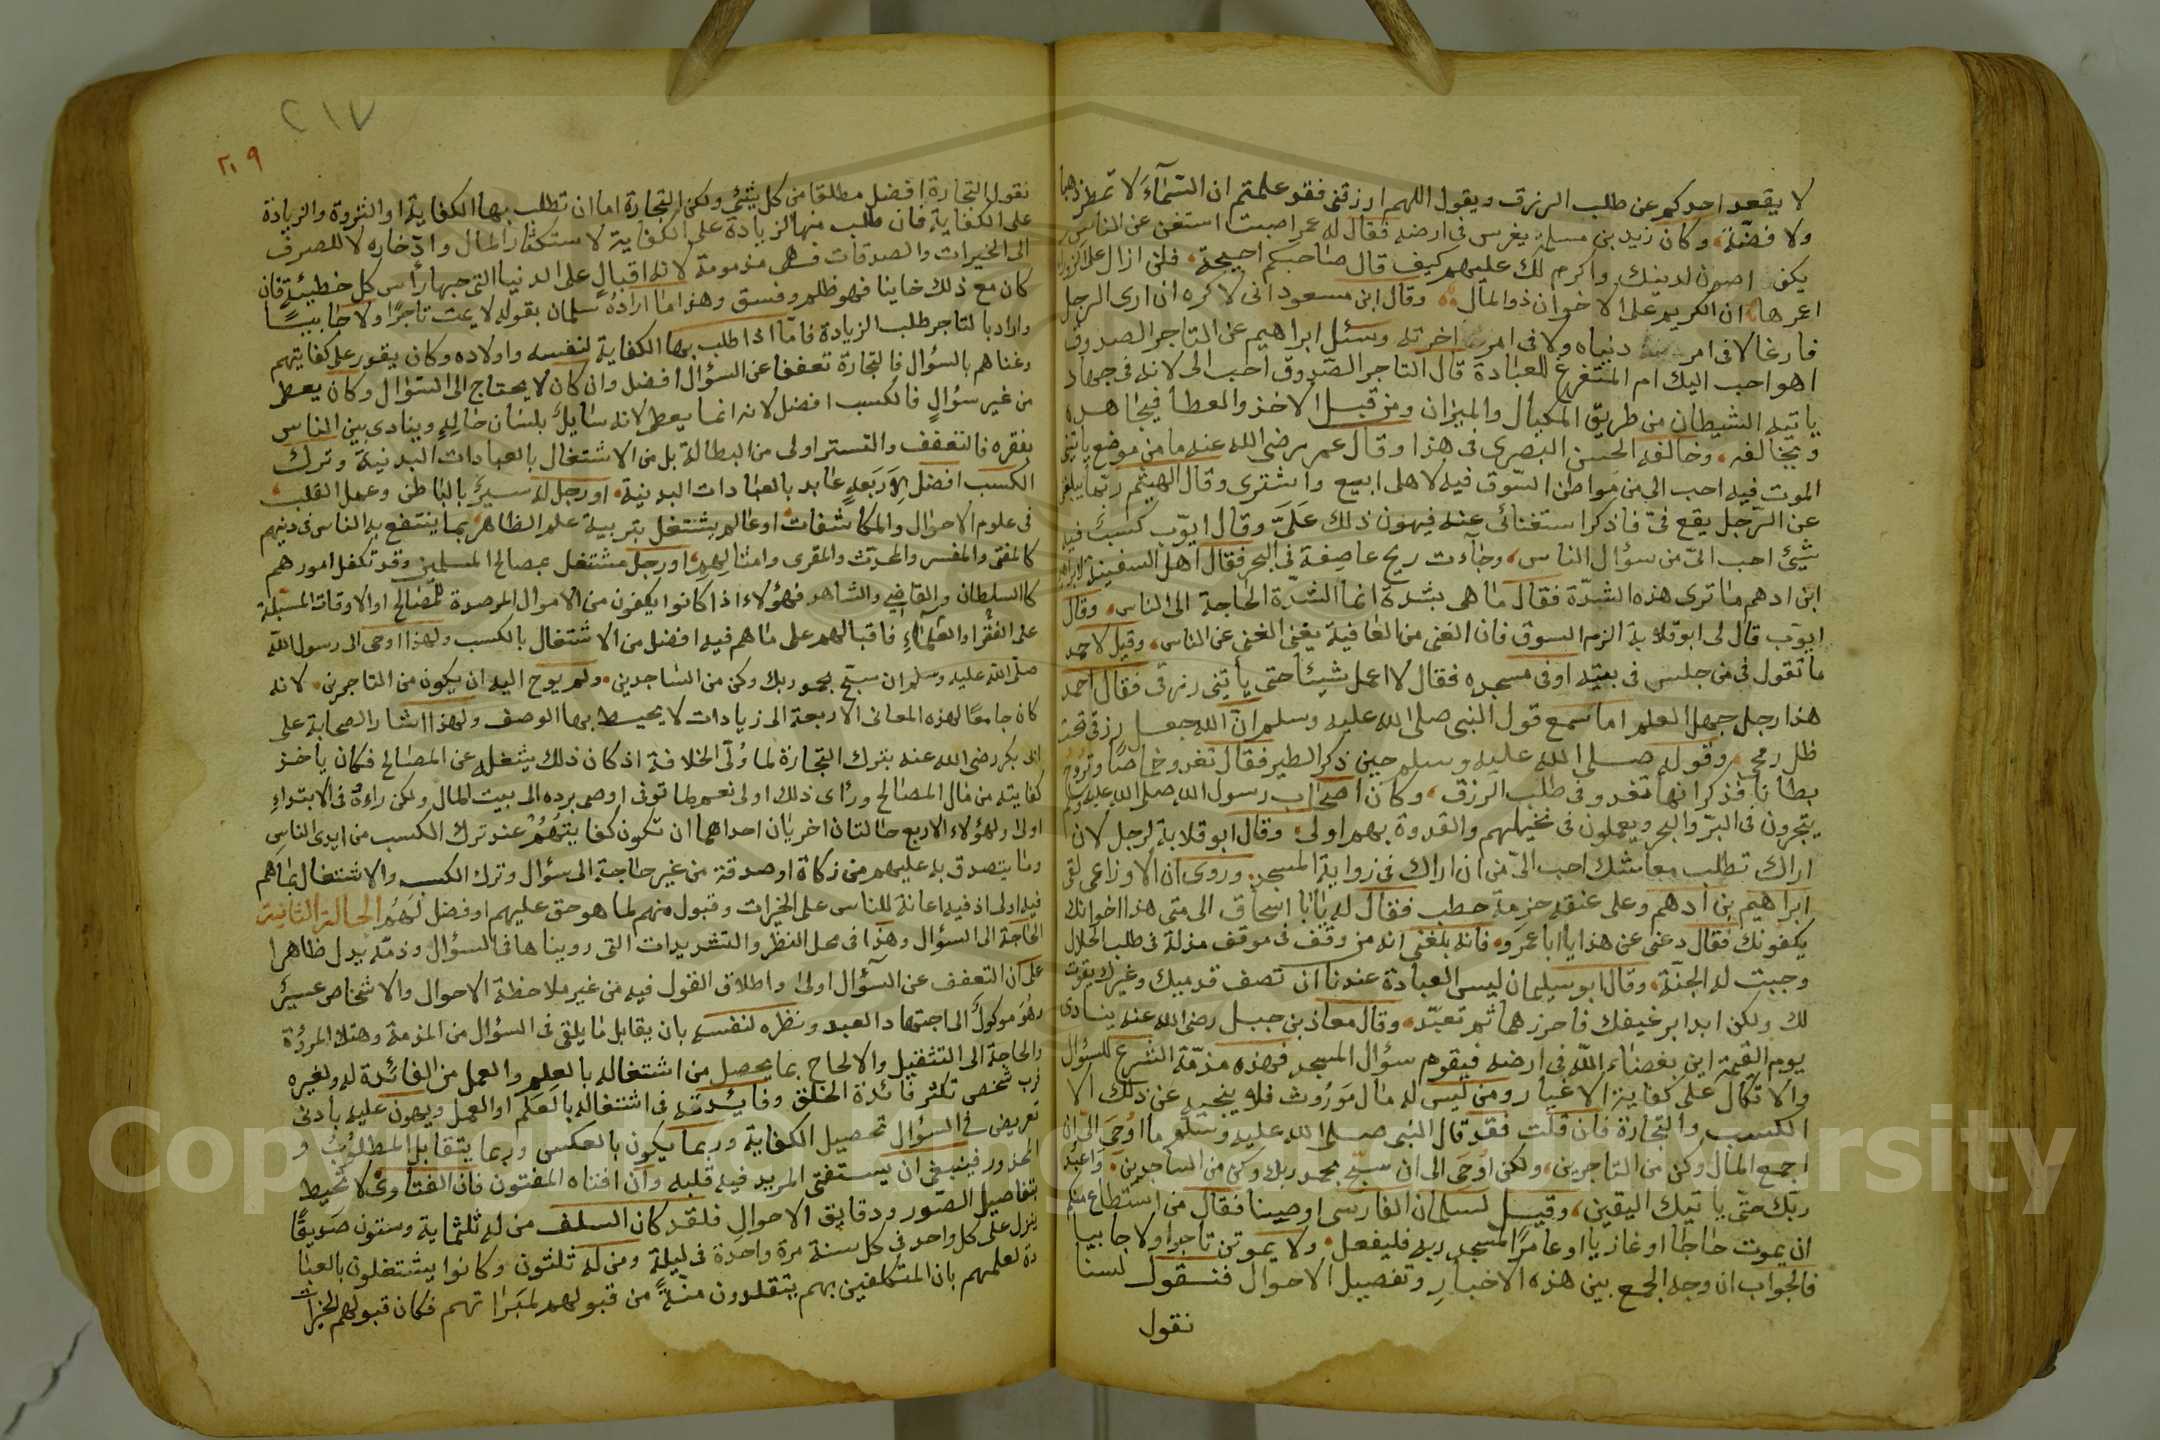 لا يقعد احدكم عن طلب الرزق ويقول اللهم ارزقني فقد علمتم ان السماء لا تمطر ذهبا
ولا فضة وكان زيد بن مسلمة يغرس في ارضه فقال له عمر اصبت استغن عن الناس
يكن اصون لدينك واكرم لك عليهم كيف قال صاحبكم احيحة فلن ازال على الزوراء
اعرها ان الكريم على الاخوان ذو المال وقال ابن مسعود اني لاكره ان ارى الرجل
فارغا لا في امر دنياه ولا في امر اخرته وسئل ابراهيم عن التاجر الصدوق
اهو احب اليك ام المتفرغ للعبادة قال التاجر الصدوق احب الي لانه في جهاد
ياتيه الشيطان من طريق المكيال والميزان ومن قبل الاخذ والعطا فيجاهده
ويخالفه وخالفه الحسن البصري في هذا وقال عمر رضي الله عنه ما من موضع ياتيني
الموت فيه احب الي من مواطن السوق فيه لاهلي ابيع واشتري وقال الهيثم ربما يبلغني
عن الرجل يقع في فاذكر استغنائي عنه فيهون ذلك علي وقال ايوب كسب فيه
شيئ احب الي من سؤال الناس وجاءت ريح عاصفة في البحر فقال اهل السفينة لابراهيم
ابن ادهم ما ترى هذه الشدة فقال ما هي بشدة انما الشدة الحاجة الى الناس وقال
ايوب قال لي ابو قلابة الزم السوق فان الغنى من العافية يعني الغنى عن الناس وقيل لاحمد
ما تقول في من جلس في بيته او في مسجده فقال لا اعمل شيئا حتى ياتيني رزقي فقال احمد
هذا رجل جهل العلم اما سمع قول النبي صلى الله عليه وسلم ان الله جعل رزقي تحت
ظل رمحي وقوله صلى الله عليه وسلم حين ذكر الطير فقال تغدو خماصا وتروح
بطانا فذكر انها تغدو في طلب الرزق وكان اصحاب رسول الله صلى الله عليه وسلم
يتجرون في البر والبحر ويعملون في نخيلهم والقدوة بهم اولى وقال ابو قلابة لرجل لان
اراك تطلب معاشك احب الي من ان اراك في زواية المسجد وروى ان الاوزاعي لقي
ابراهيم بن ادهم وعلى عنقه حزمة حطب فقال له يابا اسحاق الى متى هذا اخوانك
يكفونك فقال دعني عن هذا يا ابا عمرو فانه بلغني انه من وقف في موقف مذلة في طلب الحلال
وجبت له الجنة وقال ابو سليمان ليس العبادة عندنا ان تصف قدميك وغيرك يقوت
لك ولكن ابدا برغيفك فاحرزهما ثم تعبد وقال معاذ بن جبل رضي الله عنه ينادى
يوم القيمة اين بغضاء الله في ارضه فيقوم سؤال المسجد فهذه مذمة الشرع للسؤال
والاتكال على كفاية الاغيار ومن ليس له مال موروث فلا ينجيه عن ذلك الا
الكسب والتجارة فان قلت فقد قال النبي صلى الله عليه وسلم ما اوحي الي ان
اجمع المال وكن من التاجرين ولكن اوحي الى ان سبح بحمد ربك وكن من الساجدين واعبد
ربك حتى ياتيك اليقين وقيل لسلمان الفارسي اوصينا فقال من استطاع منكم
ان يموت حاجا او غازيا او عامرا لمسجد ربه فليفعل ولا يموتن تاجرا ولا جابيا
فالجواب ان وجه الجمع بين هذه الاخبار وتفصيل الاحوال فنقول لسنا
نقول
٢١٧
٢٠٩
نقول التجارة افضل مطلقا من كل شئ ولكن التجارة اما ان تطلب بها الكفاية او الثروة والزيادة
على الكفاية فان طلب منها الزيادة على الكفاية لاستكثار المال وادخاره لا للصرف
الى الخيرات والصدقات فهي مذمومة لانه اقبال على الدنيا التي حبها رأس كل خطيئة فان
كان مع ذلك خاينا فهو ظلم وفسق وهذا ما اراده سلمان بقوله لا يمت تاجرا ولا جابيا
واراد بالتاجر طلب الزيادة فاما اذا طلب بها الكفاية لنفسه واولاده وكان يقدر على كفايتهم
وغناهم بالسؤال فالتجارة تعففا عن السؤال افضل وان كان لا يحتاج الى السؤال وكان يعطى
من غير سؤال فالكسب افضل لانه انما يعطى لانه سايل بلسان حاله وينادى بين الناس
بفقره فالتعفف والتستر اولى من البطالة بل من الاشتغال بالعبادات البدنية وترك
الكسب افضل لاربعة عابد بالعبادات البدنية او رجل له سير بالباطن وعمل القلب
في علوم الاحوال والمكاشفات او عالم يشتغل بتربية علم الظاهر بما ينتفع به الناس في دينهم
كالمفتي والمفسر والمحدث والمقري وامثالهم او رجل مشتغل بمصالح المسلمين وقد تكفل امورهم
كالسلطان والقاضي والشاهد فهؤلاء اذا كانوا يكفون من الاموال المرصدة للمصالح او الاوقاف المسبلة
على الفقرا والعلماء فاقبالهم على ما هم فيه افضل من الاشتغال بالكسب ولهذا اوحى الى رسول الله
صلى الله عليه وسلم ان سبح بحمد ربك وكن من الساجدين ولم يوح اليه ان يكون من التاجرين لانه
كان جامعا لهذه المعاني الاربعة الى زيادات لا يحيط بها الوصف ولهذا اشار الصحابة على
ابي بكر رضي الله عنه بترك التجارة لما ولي الخلافة اذ كان ذلك يشغله عن المصالح فكان ياخذ
كفايته من مال المصالح ورأى ذلك اولى نعم لما توفي اوصى برده الى بيت المال ولكن راه في الابتداء
اولى ولهؤلاء الاربع حالتان اخريان احداهما ان تكون كفايتهم عند ترك الكسب من ايدي الناس
وما يتصدق به عليهم من زكاة او صدقة من غير حاجة الى سؤال وترك الكسب والاشتغال بما هم
فيه اولى اذ فيه اعانة للناس على الخيرات وقبول منهم لما هو حق عليهم او فضل لهم الحالة الثانية
الحاجة الى السؤال وهذا في محل النظر والتشديدات التي رويناها في السؤال وذمه يدل ظاهرا
على ان التعفف عن السؤال اولى واطلاق القول فيه من غير ملاحظة الاحوال والاشخاص عسير
وهو موكول الى اجتهاد العبد ونظره لنفسه بان يقابل ما يلقى في السؤال من المذمة وهتك المروة
والحاجة الى التثقيل والالحاح بما يحصل من اشتغاله بالعلم والعمل من الفائدة له ولغيره
فرب شخص تكثر فائدة الخلق وفايدته في اشتغاله بالعلم او العمل ويهون عليه بادنى
تعريض في السؤال تحصيل الكفاية وربما يكون بالعكس وربما يتقابل المطلوب و
المحذور فينبغي ان يستفتي المريد فيه قلبه وان افتاه المفتون فان الفتاوى لا تحيط
بتفاصيل الصور ودقايق الاحوال فلقد كان السلف من له ثلثماية وستون صديقا
ينزل على كل واحد في كل سنة مرة واحدة في ليلة ومن له ثلثون وكانوا يشتغلون بالعبا
دة لعلمهم بان المتكلفين بهم يتقلدون منة من قبولهم لمبراتهم فكان قبولهم للخيرات
Copyright © King Saud University